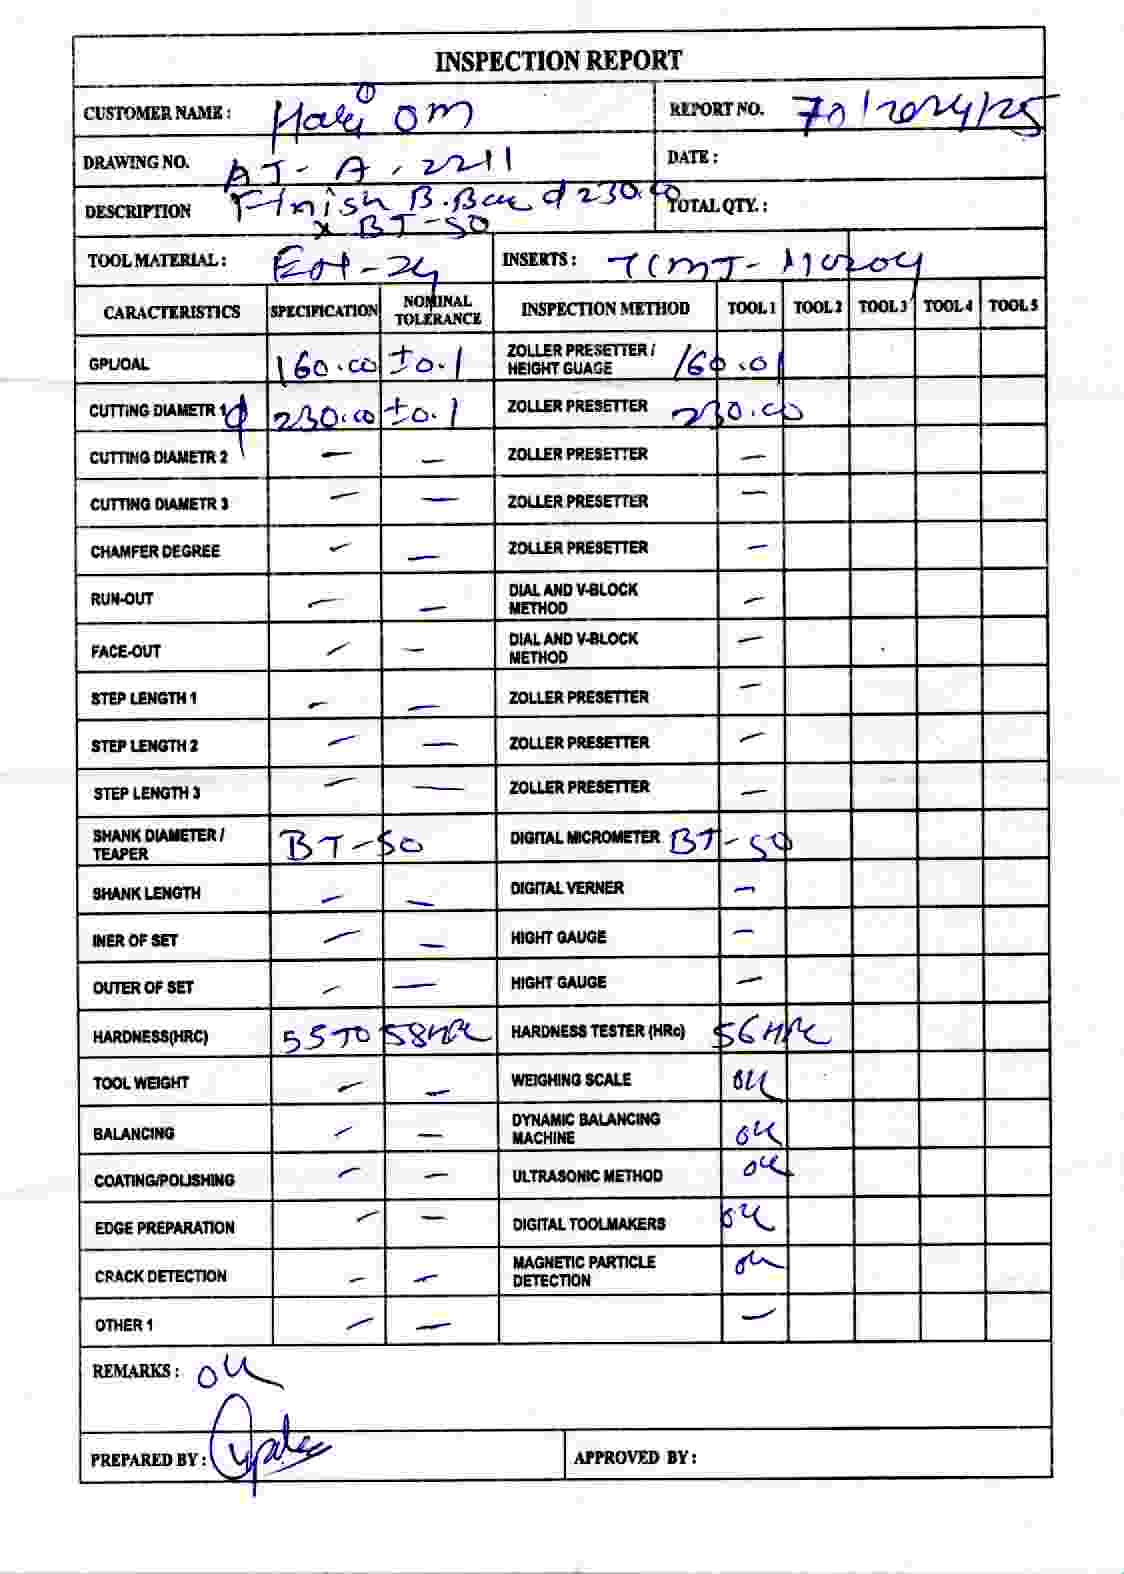 INSPECTION REPORT
CUSTOMER NAME : Hari OM
REPORT NO. 70/2024/25
DRAWING NO. AJ-A-2211
DATE :
DESCRIPTION Finish B.Bar φ 230.00
x BT-50
TOTAL QTY. :
TOOL MATERIAL : En-24
INSERTS : TCMT-110204
CARACTERISTICS SPECIFICATION NOMINAL TOLERANCE INSPECTION METHOD TOOL 1 TOOL 2 TOOL 3 TOOL 4 TOOL 5
GPL/OAL 160.00 ±0.1 ZOLLER PRESETTER / HEIGHT GUAGE 160.01
CUTTING DIAMETR 1 φ 230.00 ±0.1 ZOLLER PRESETTER 230.00
CUTTING DIAMETR 2 – – ZOLLER PRESETTER –
CUTTING DIAMETR 3 – – ZOLLER PRESETTER –
CHAMFER DEGREE – – ZOLLER PRESETTER –
RUN-OUT – – DIAL AND V-BLOCK METHOD –
FACE-OUT – – DIAL AND V-BLOCK METHOD –
STEP LENGTH 1 – – ZOLLER PRESETTER –
STEP LENGTH 2 – – ZOLLER PRESETTER –
STEP LENGTH 3 – – ZOLLER PRESETTER –
SHANK DIAMETER / TEAPER BT-50 DIGITAL MICROMETER BT-50
SHANK LENGTH – – DIGITAL VERNER –
INER OF SET – – HIGHT GAUGE –
OUTER OF SET – – HIGHT GAUGE –
HARDNESS(HRC) 55 TO 58HRC HARDNESS TESTER (HRc) 56HRC
TOOL WEIGHT – – WEIGHING SCALE OK
BALANCING – – DYNAMIC BALANCING MACHINE OK
COATING/POLISHING – – ULTRASONIC METHOD OK
EDGE PREPARATION – – DIGITAL TOOLMAKERS OK
CRACK DETECTION – – MAGNETIC PARTICLE DETECTION OK
OTHER 1 – – –
REMARKS : OK
PREPARED BY :
APPROVED BY :